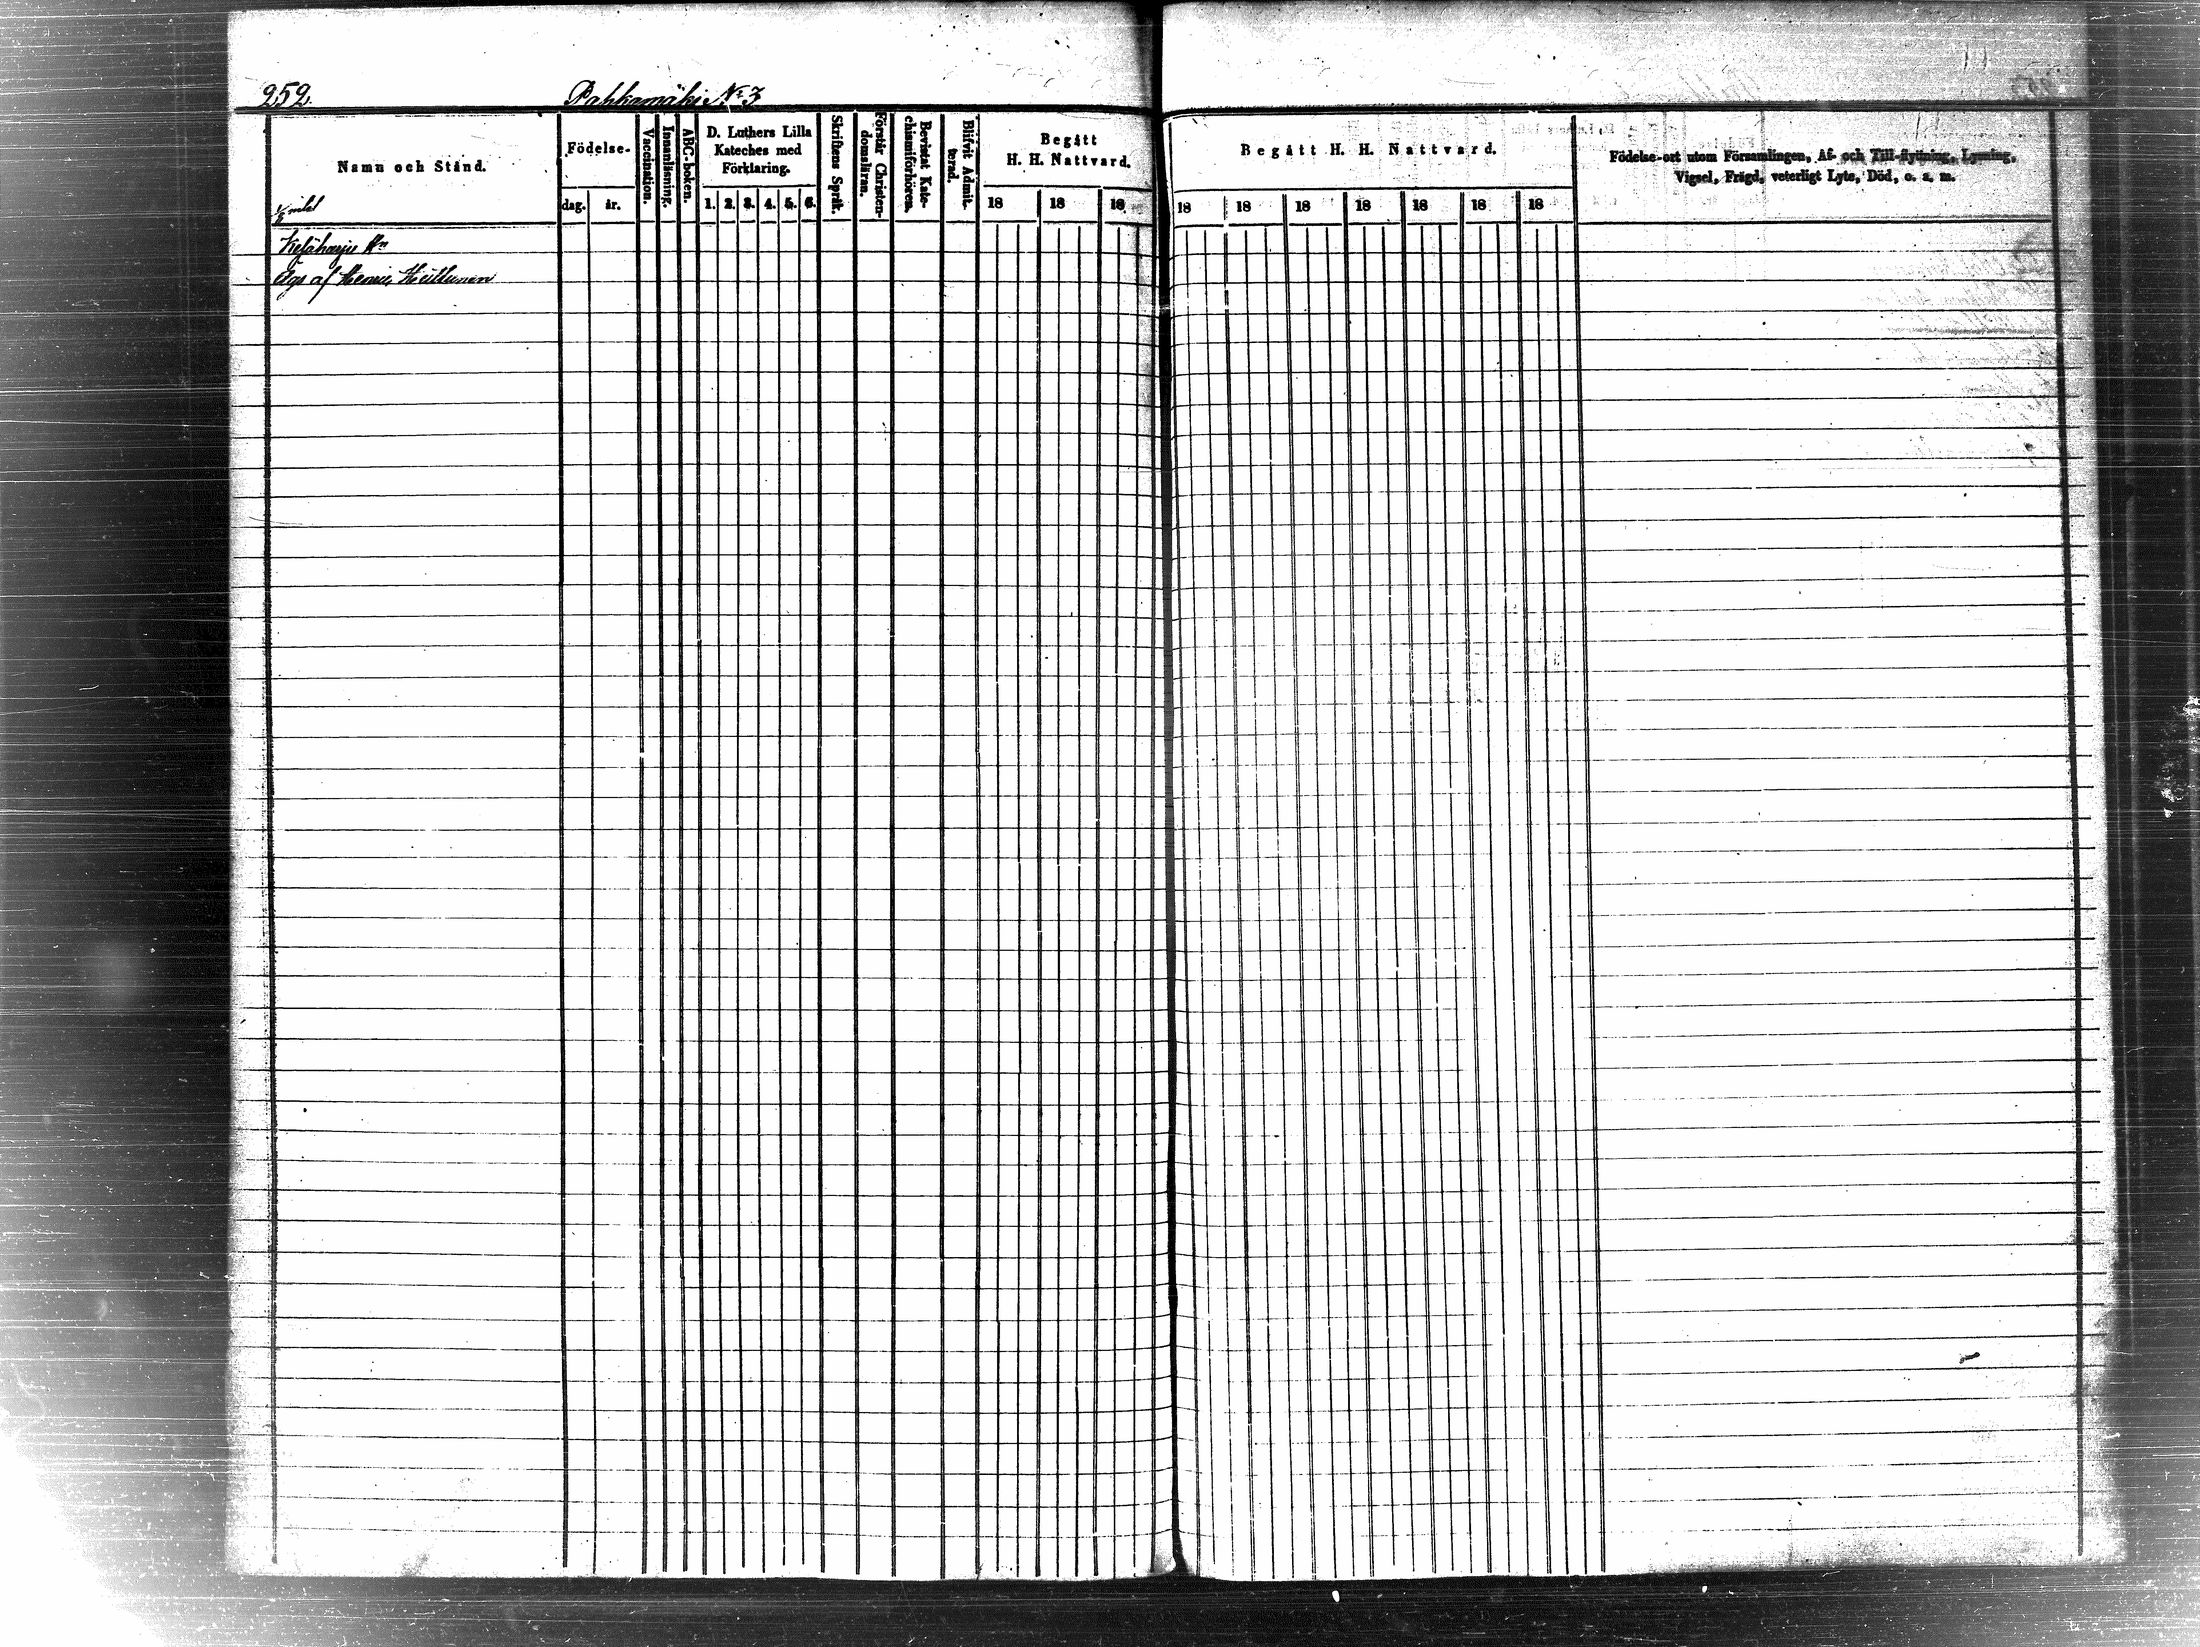 252. Pahkamäki No 3
Namn och Stånd.
Födelse-
dag. år.
Vaccination.
Innanläsning.
ABC-boken.
D. Luthers Lilla
Kateches med
Förklaring.
1. 2. 3. 4. 5. 6.
Skriftens Språk.
Förstår Christen-
domsläran.
Bevistat Kate-
chismiförhören.
Blifvit Admit-
terad.
Begått
H. H. Nattvard.
18 18 18
Begått H. H. Nattvard.
18 18 18 18 18 18 18
Födelse-ort utom Församlingen, Af- och Till-flyttning, Lysning,
Vigsel, Frägd, veterligt Lyte, Död, o. s. m.
mtal
Äges af Henric